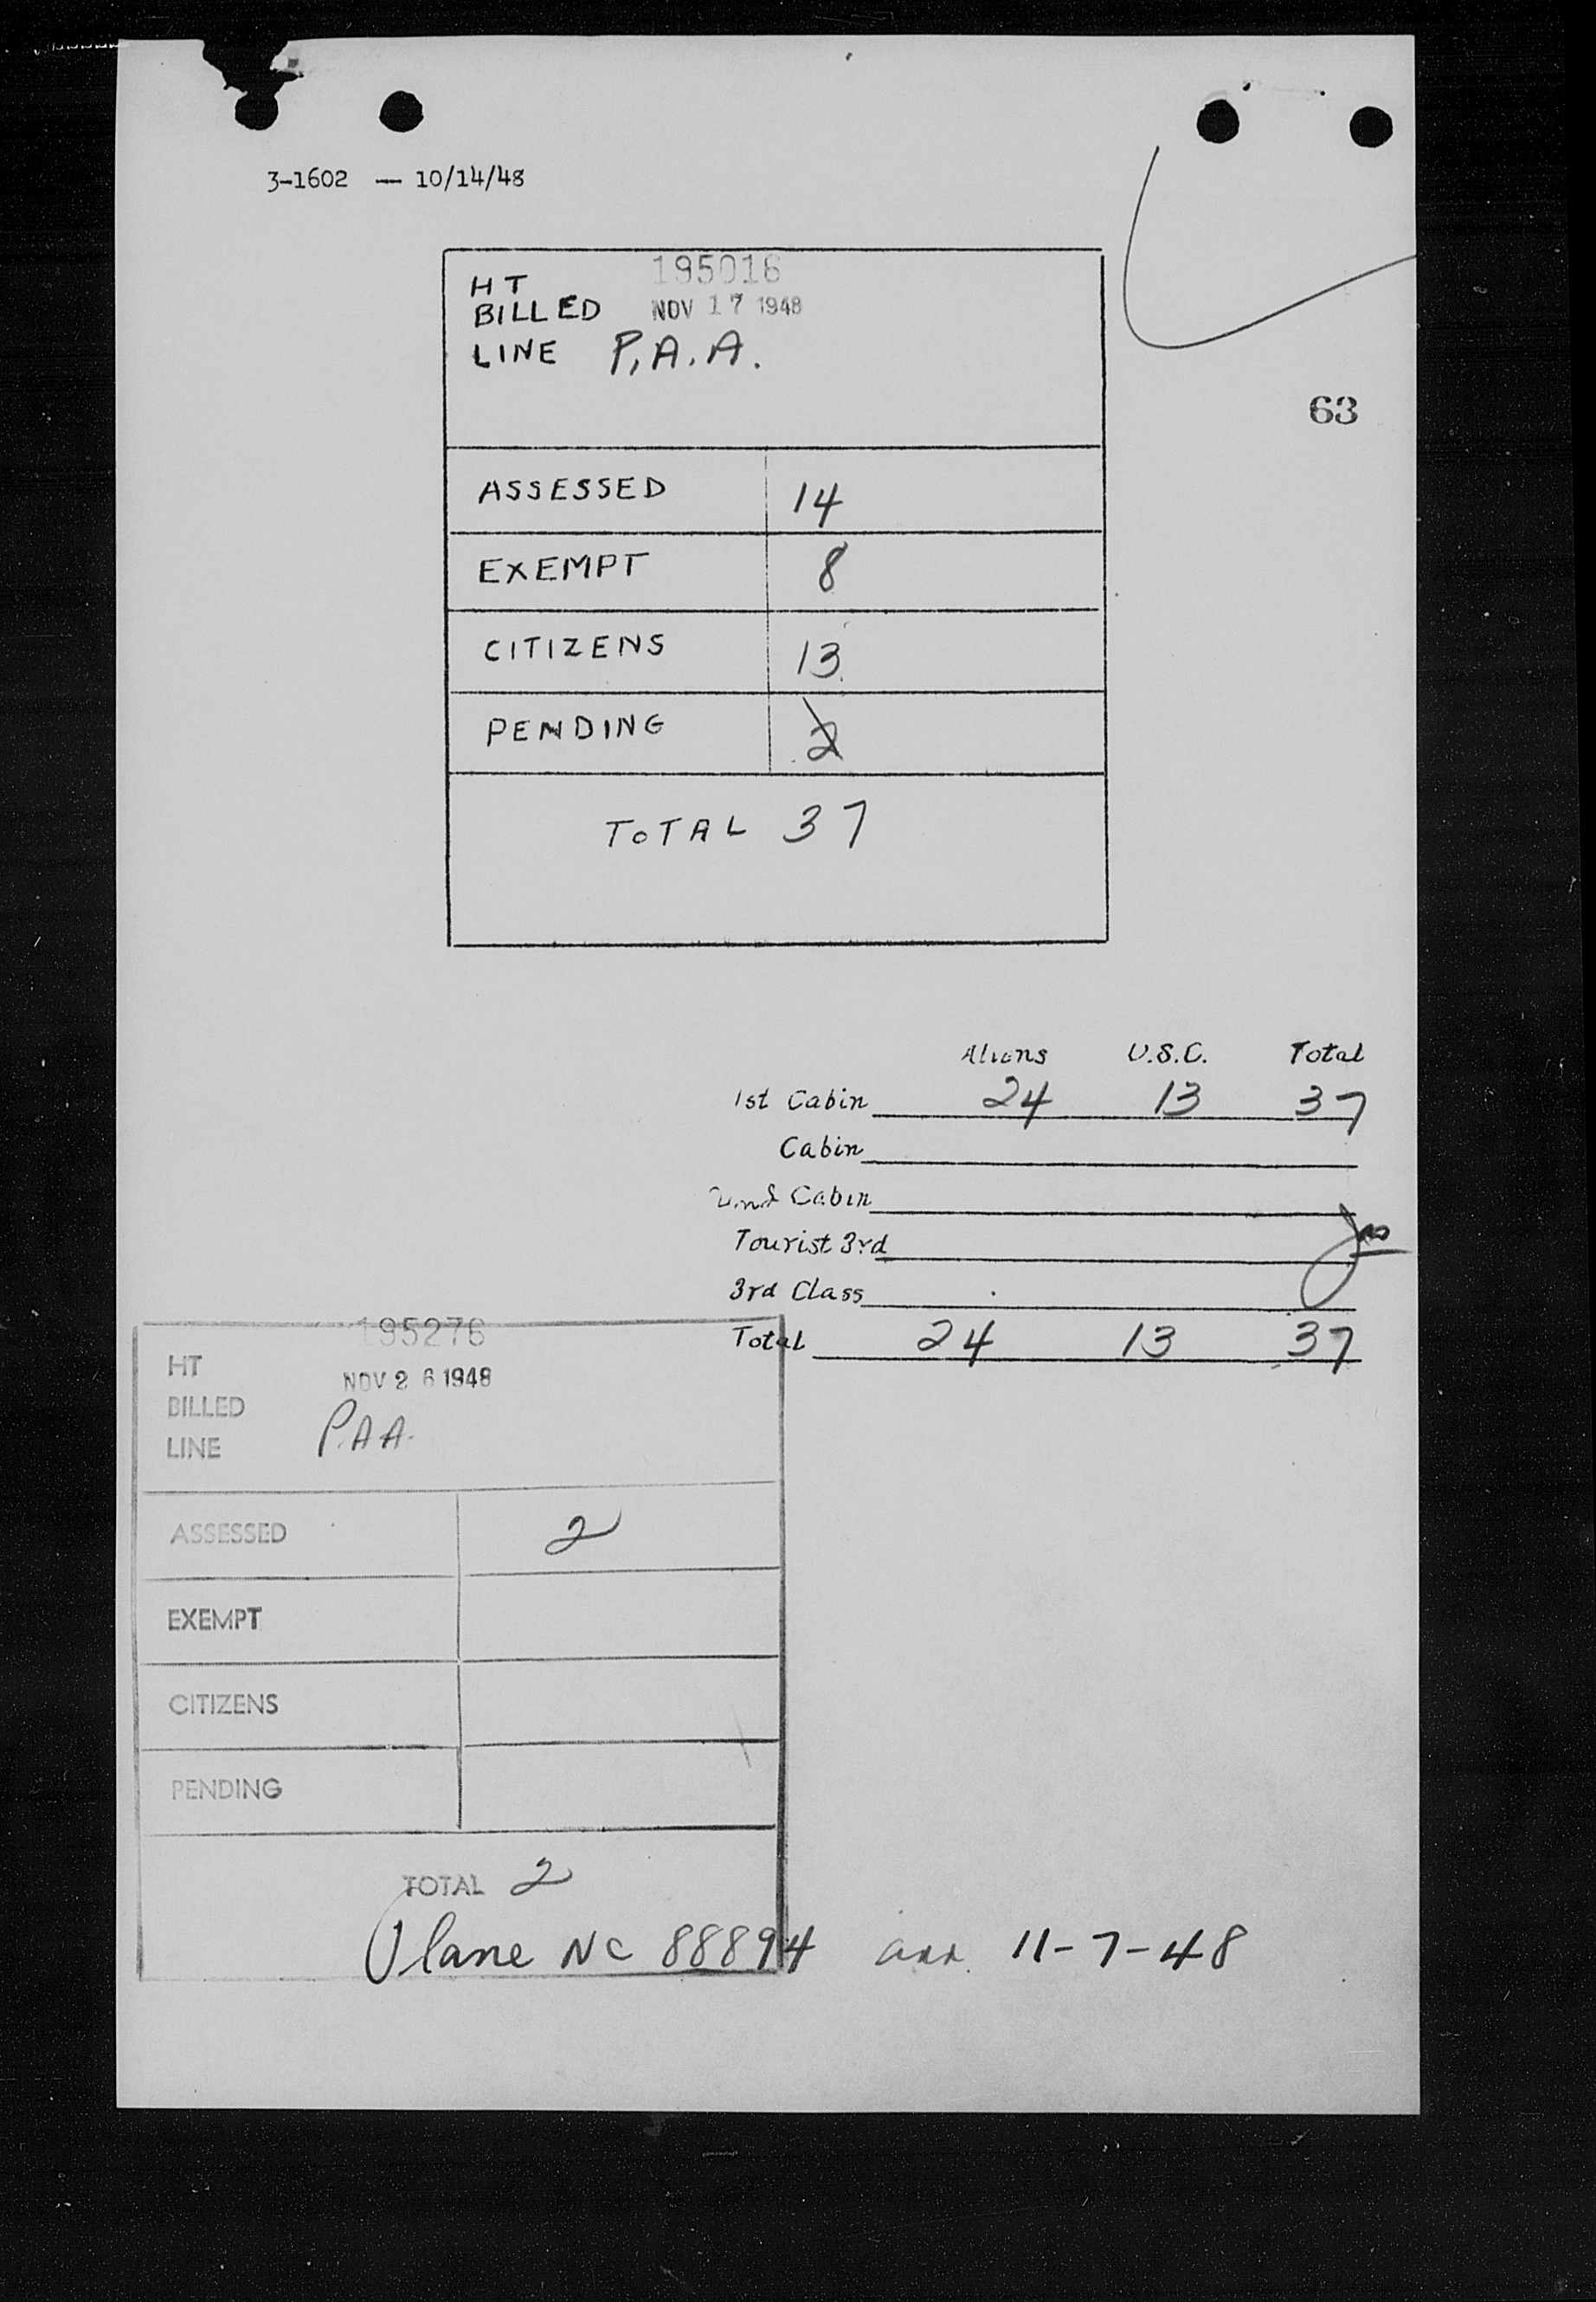 3-1602 — 10/14/48
195016
HT
BILLED NOV 17 1948
LINE P.A.A.
63
ASSESSED 14
EXEMPT 8
CITIZENS 13
PENDING 2
TOTAL 37
Aliens U.S.C. Total
1st Cabin 24 13 37
Cabin
2nd Cabin
Tourist 3rd
3rd Class
Total 24 13 37
195276
HT NOV 26 1948
BILLED
LINE P.A.A.
ASSESSED 2
EXEMPT
CITIZENS
PENDING
TOTAL 2
Plane NC 88894 arr. 11-7-48